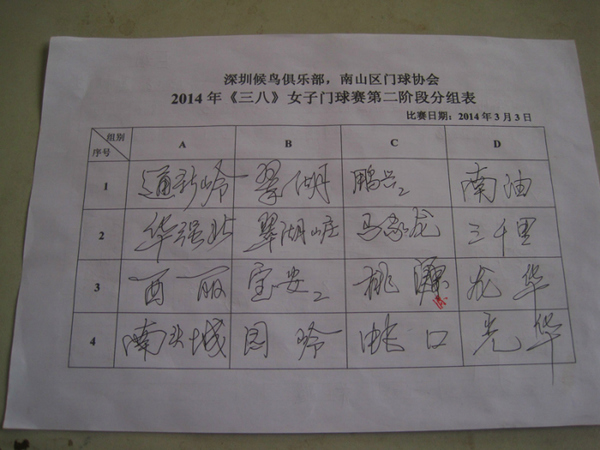 深圳候鸟俱乐部，南山区门球协会
2014年《三八》女子门球赛第二阶段分组表
比赛日期：2014年3月3日
组别 序号 A B C D
1 通新岭 翠湖 鹏兴2 南油
2 华强北 翠湖山庄 马家龙 三千里
3 西丽 宝安2 桃源 龙华
4 南头城 园岭 蛇口 光华